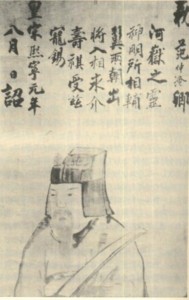 范仲淹卿
河嶽之靈
神明所相輔
翼兩朝出
將入相永介
壽祺受玆
寵錫
皇宋熙寧元年
八月日詔